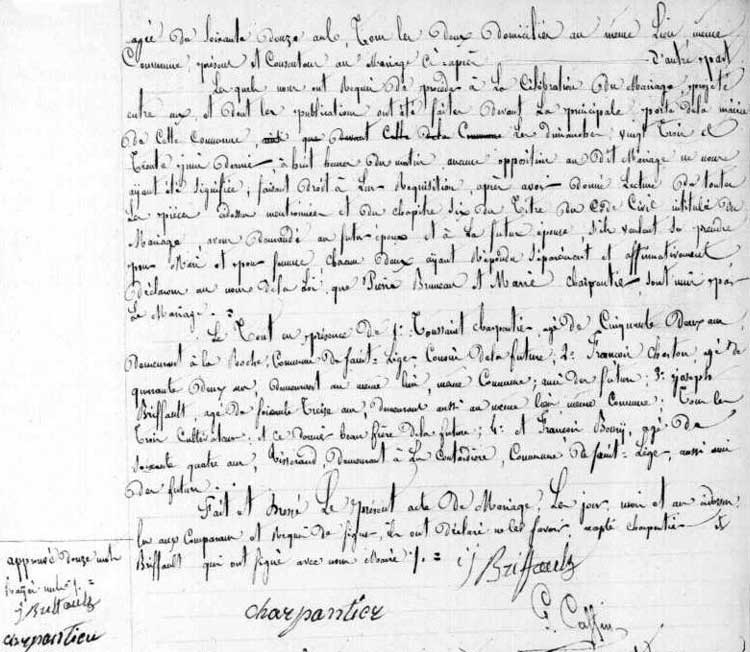 agée de soixante douze ans, Tous les deux domiciliés au même Lieu même
Commune, présens et Consentans au Mariage ci-après d'autre part
Lesquels nous ont requis de procéder à La Célébration du Mariage projeté
entre eux, et dont les publications ont été faites devant La principale porte de la mairie
de Cette Commune que devant Cette Commune Les dimanches vingt Trois et
Trente juin dernier à huit heures du matin, aucune opposition au dit Mariage ne nous
ayant été signifiée, faisant droit à Leur Réquisition, après avoir donné Lecture de toutes
Les pièces mentionnées et du chapitre six du Titre du Code Civil intitulé du
Mariage avons demandé au futur époux et à La future épouse s'ils veulent se prendre
pour Mari et pour femme chacun d'eux ayant Répondu séparément et affirmativement
déclarons au nom de la Loi, que Pierre Bruneau et Marie charpentier sont unis par
Le Mariage.
Le Tout en présence de 1° Toussaint charpentier agé de Cinquante Deux ans
demeurant à la Roche, Commune de Saint-Léger Cousin de la future, 2° François agé de
quarante deux ans, demeurant au même lieu, même Commune, ami des futurs; 3° joseph
Briffault, agé de soixante Treize ans, demeurant aussi au même lieu même Commune; Tous les
Trois Cultivateurs, et ce dernier beau frère de la future; 4° et François agé de
soixante quatre ans, Tisserand, demeurant à La Commune de Saint-Léger, aussi ami
des futurs.
Fait et Dressé Le présent acte de Mariage, Les jour, mois et an
lu aux Comparans et Requis de signer, ils ont déclaré ne le savoir, excepté charpentier et
Briffault qui ont signé avec nous Maire
j Briffault
charpantier
Caffin
approuvé douze mots
rayés nuls
j Briffault
charpantier